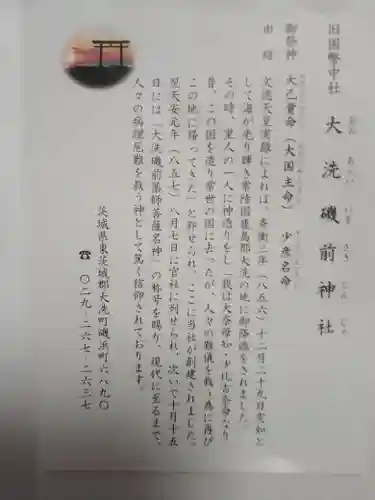 旧国幣中社
大洗磯前神社
おお あらい いそ さき じん じゃ
御祭神 大己貴命（大国主命） 少彦名命
由緒 文徳天皇実録によれば、斉衡三年（八五六）十二月二十九日突如と
して海が光り輝き常陸国鹿島郡大洗の地に御降臨をされました。
その時、里人の一人に神憑りをし「我は大奈母知・少比古奈命なり
昔、この国を造り常世の国に去ったが、人々の難儀を救う為に再び
この地に帰ってきた」と仰せられ、ここに当社が創建されました。
翌天安元年（八五七）八月七日に官社に列せられ、次いで十月十五
日には「大洗磯前薬師菩薩名神」の称号を賜り、現代に至るまで、
人々の病埋厄難を救う神として篤く信仰されております。
茨城県東茨城郡大洗町磯浜町六八九〇
☎ 〇二九-二六七-二六三七